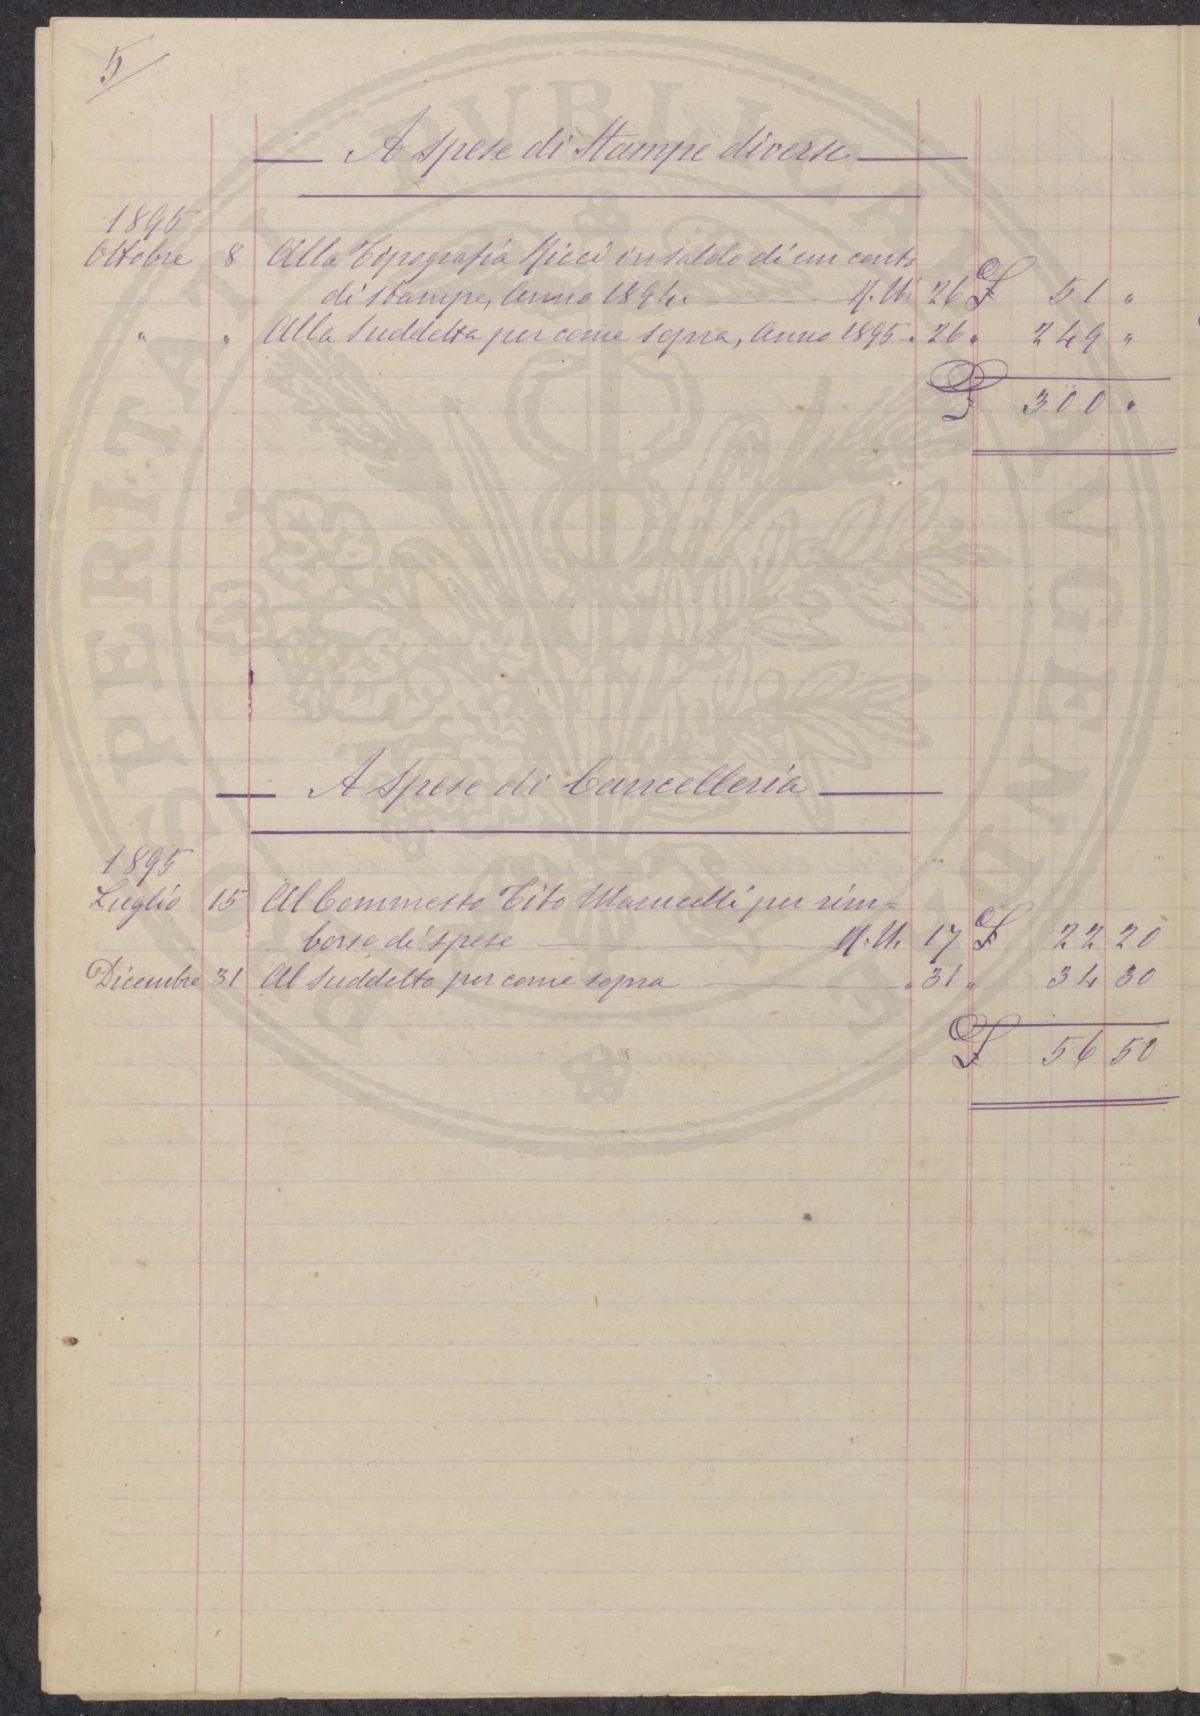 5
A Spese di Stampe diverse
1895
Ottobre 8 Alla Tipografia Ricci in saldo di un conto
di stampe, Anno 1894. M. U. 26 £ 51 "
" " Alla Suddetta per come sopra, Anno 1895 " 26 " 249 "
£ 300 "
A Spese di Cancelleria
1895
Luglio 15 Al Commesso Tito Marucelli per rim=
borso di spese M. U. 17 £ 22 20
Dicembre 31 Al Suddetto per come sopra " 31 " 34 30
£ 56 50
PROSPERITATI PVBLICAE AVGENDAE